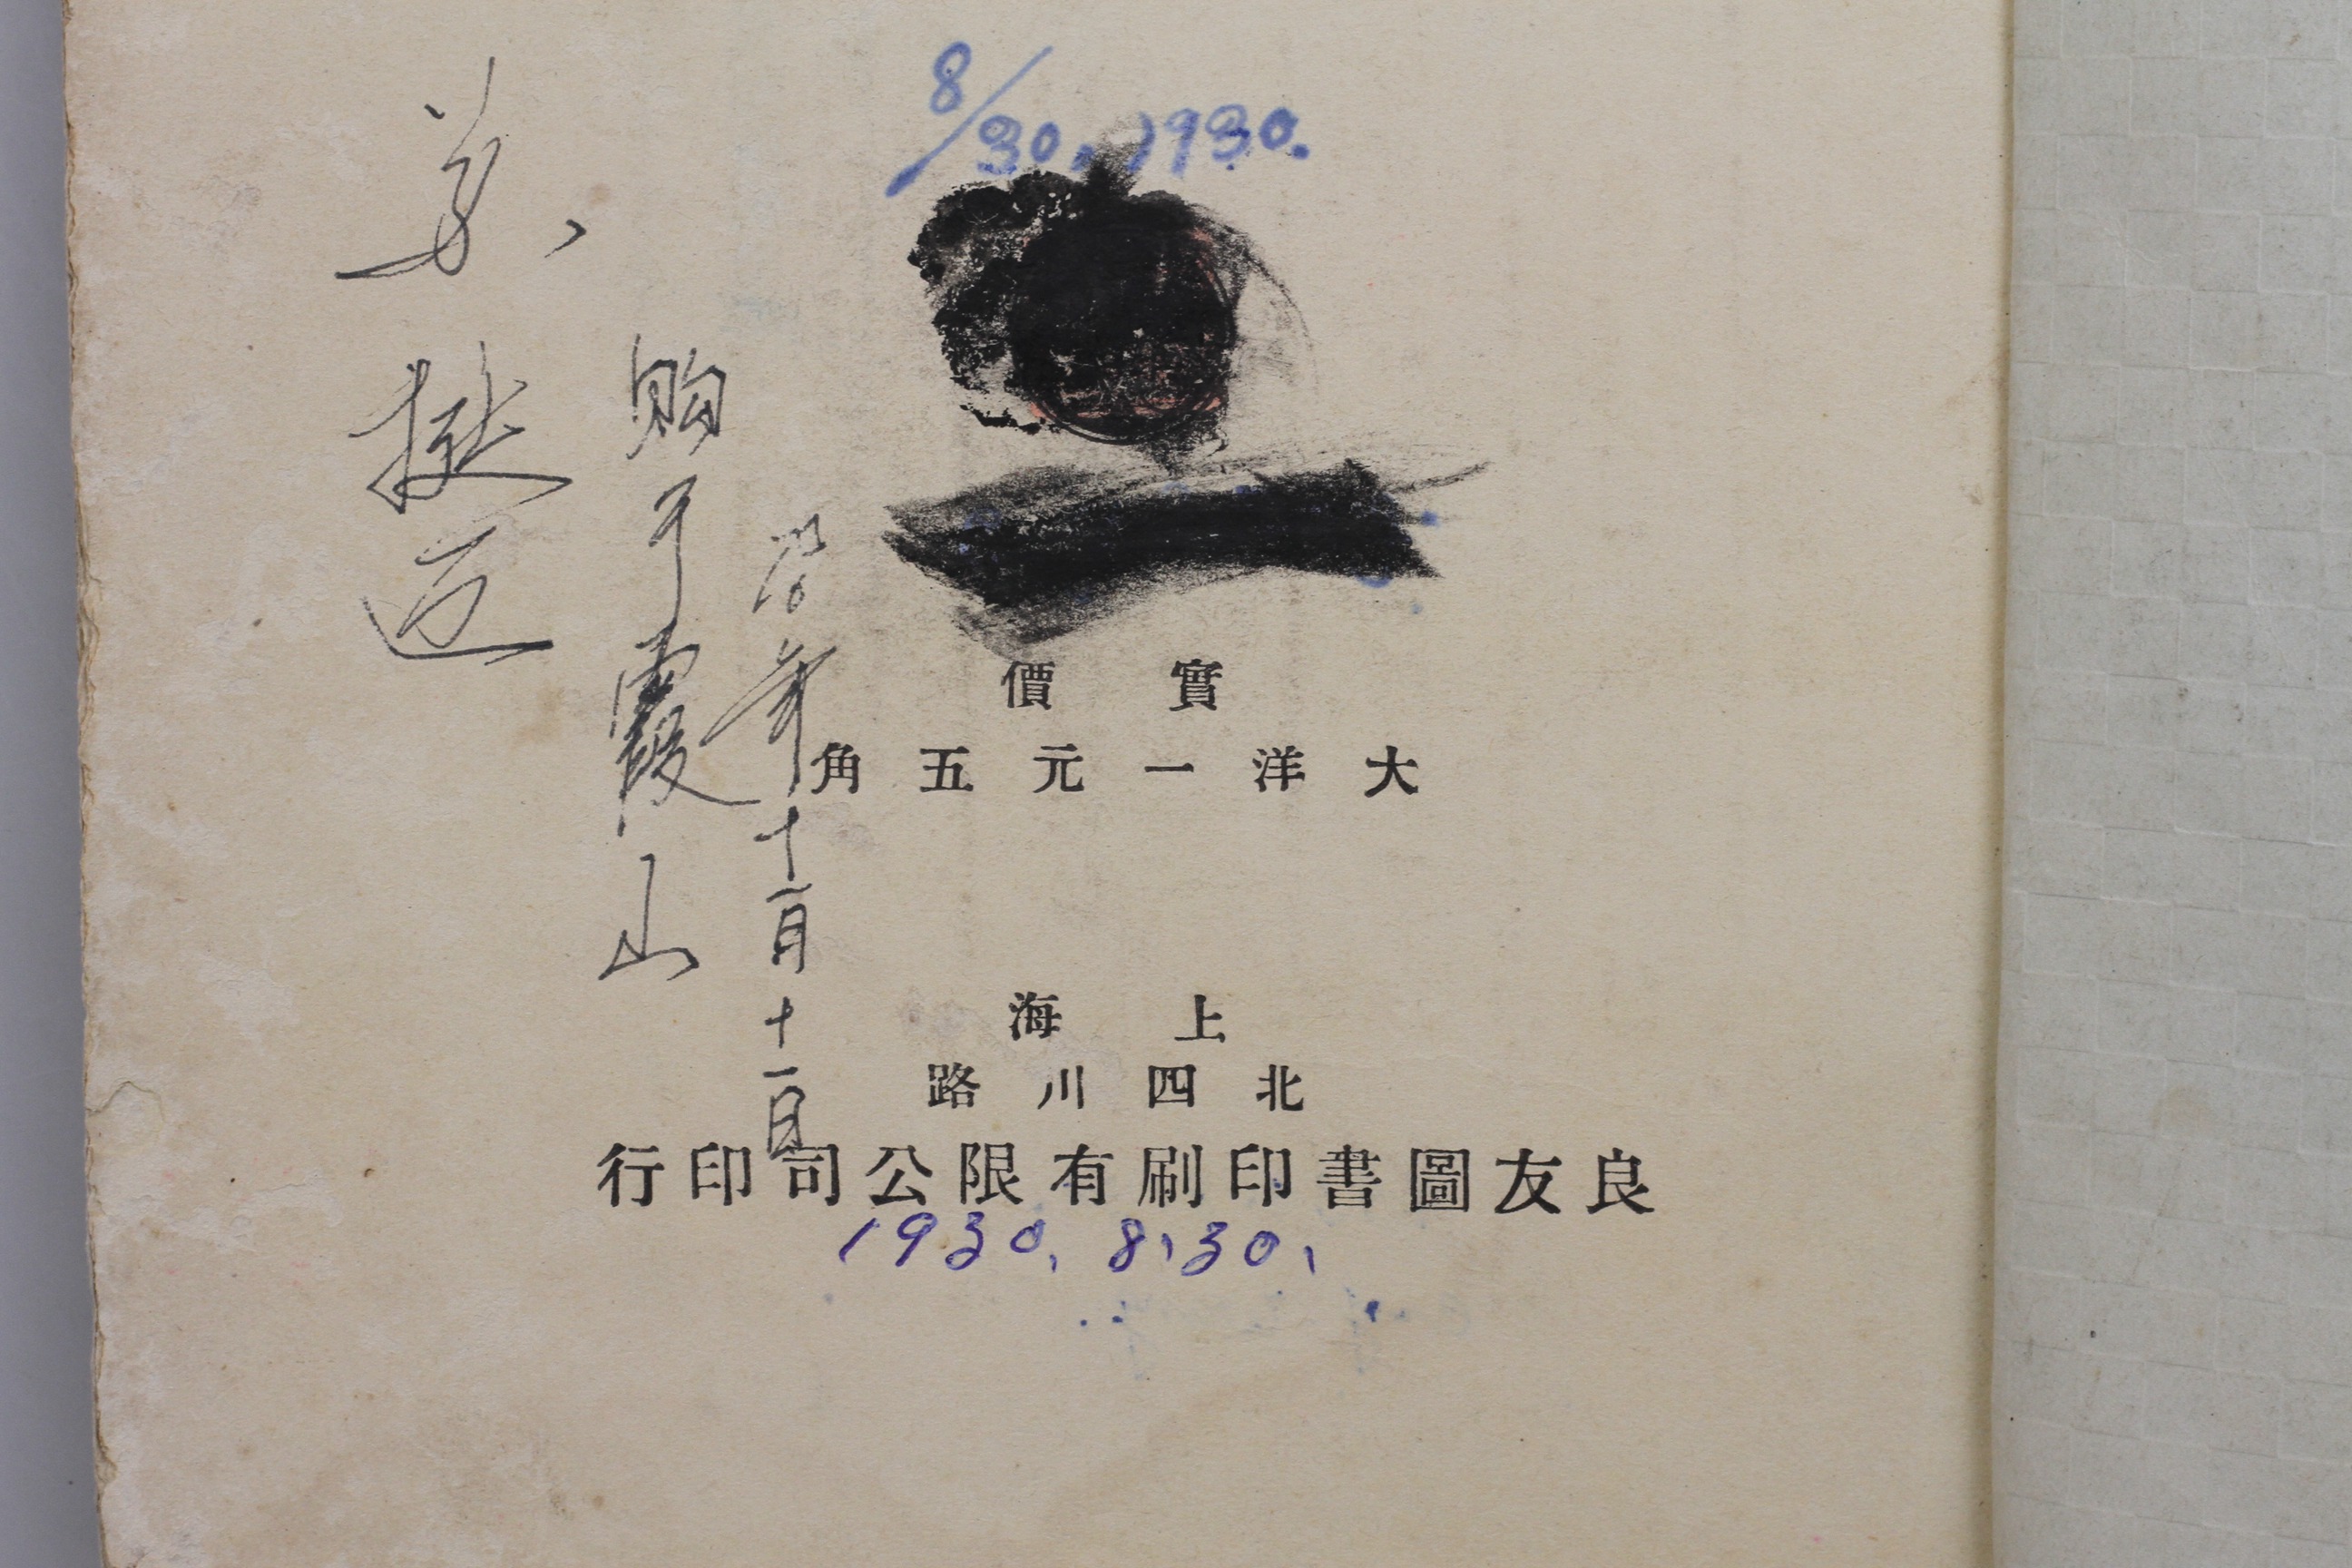 8/30, 1930.
實價
大洋一元五角
上海
北四川路
良友圖書印刷有限公司印行
1930, 8, 30,
年十一月十一日
购于霞山